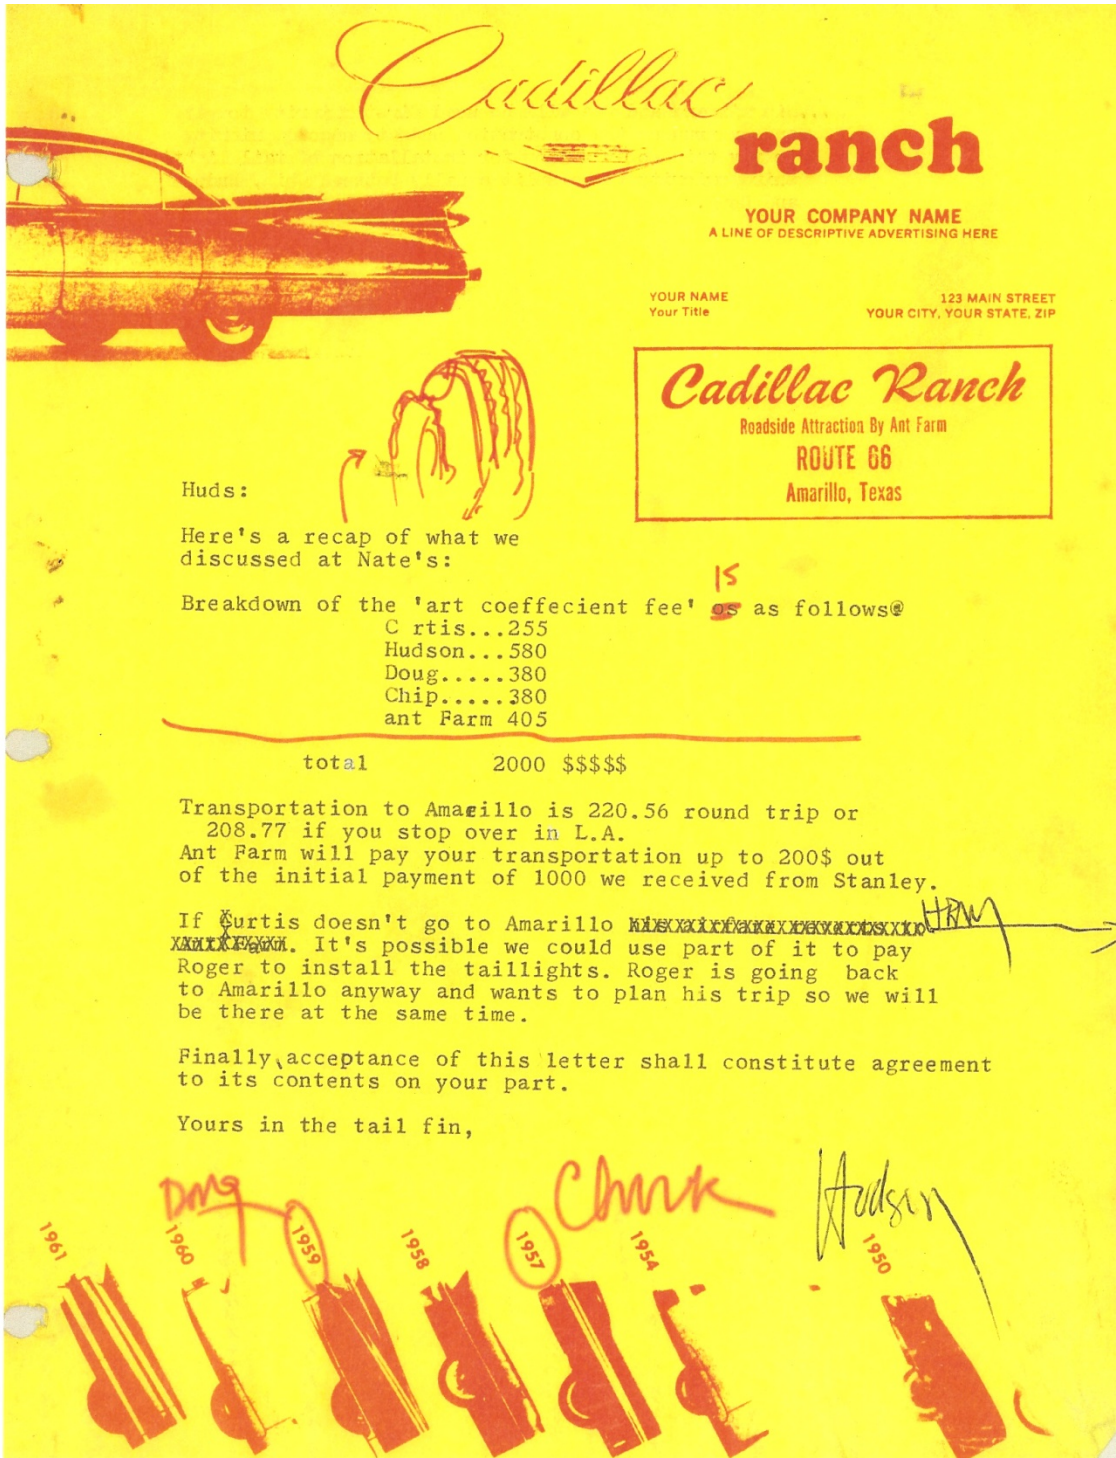 Cadillac
ranch
YOUR COMPANY NAME
A LINE OF DESCRIPTIVE ADVERTISING HERE
YOUR NAME
Your Title
123 MAIN STREET
YOUR CITY, YOUR STATE, ZIP
Cadillac Ranch
Roadside Attraction By Ant Farm
ROUTE 66
Amarillo, Texas
Huds:
Here's a recap of what we
discussed at Nate's:
IS
Breakdown of the 'art coeffecient fee' os as follows@
C rtis...255
Hudson...580
Doug.....380
Chip.....380
ant Farm 405
total 2000 $$$$$
Transportation to Amarillo is 220.56 round trip or
208.77 if you stop over in L.A.
Ant Farm will pay your transportation up to 200$ out
of the initial payment of 1000 we received from Stanley.
If Curtis doesn't go to Amarillo
. It's possible we could use part of it to pay
Roger to install the taillights. Roger is going back
to Amarillo anyway and wants to plan his trip so we will
be there at the same time.
Finally, acceptance of this letter shall constitute agreement
to its contents on your part.
Yours in the tail fin,
Doug
Chuck
Hudson
1961
1960
1959
1958
1957
1954
1950